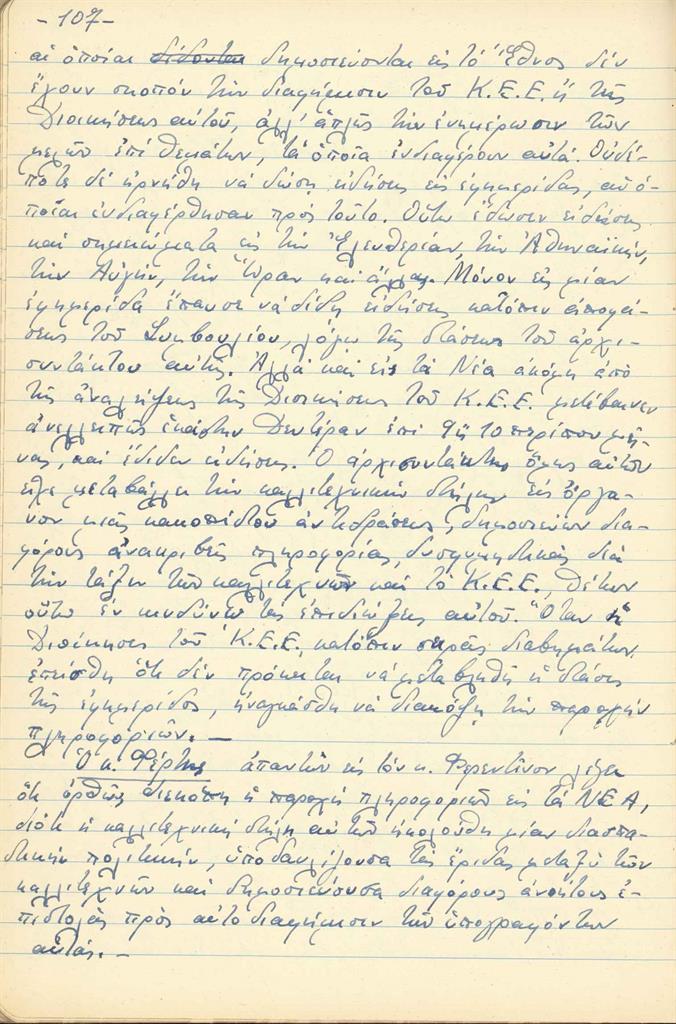 -107-
αἱ ὁποῖαι δίδονται δημοσιεύονται εἰς τὸ Ἔθνος δὲν
ἔχουν σκοπὸν τὴν διαφήμισιν τοῦ Κ.Ε.Ε. ἢ τῆς
Διοικήσεως αὐτοῦ, ἀλλ' ἁπλῶς τὴν ἐνημέρωσιν τῶν
μελῶν ἐπὶ θεμάτων, τὰ ὁποῖα ἐνδιαφέρουν αὐτά. Οὐδέ-
ποτε δὲ ἠρνήθη νὰ δώσῃ εἰδήσεις εἰς ἐφημερίδας, αἱ ὁ-
ποῖαι ἐνδιαφέρθησαν πρὸς τοῦτο. Οὕτω ἔδωσεν εἰδήσεις
καὶ σημειώματα εἰς τὴν Ἐλευθερίαν, τὴν Ἀθηναϊκήν,
τὴν Αὐγήν, τὴν Ὥραν καὶ ἄλλας. Μόνον εἰς μίαν
ἐφημερίδα ἔπαυσε νὰ δίδῃ εἰδήσεις κατόπιν ἀποφά-
σεως τοῦ Συμβουλίου, λόγω τῆς στάσεως τοῦ ἀρχι-
συντάκτου αὐτῆς. Ἀλλὰ καὶ εἰς τὰ Νέα ἀκόμη ἀπὸ
τῆς ἀναλήψεως τῆς Διοικήσεως τοῦ Κ.Ε.Ε. μετέβαινεν
ἀνελλειπῶς ἑκάστην Δευτέραν ἐπὶ 9 ἢ 10 περίπου μῆ-
νας, καὶ ἔδιδεν εἰδήσεις. Ὁ ἀρχισυντάκτης ὅμως αὐτῶν
εἶχε μεταβάλλει τὴν καλλιτεχνικὴν στήλην εἰς ὄργα-
νον μιᾶς κακοπίστου ἀντιδράσεως, δημοσιεύων δια-
φόρους ἀνακριβεῖς πληροφορίας, δυσφημιστικὰς διὰ
τὴν τάξιν τῶν καλλιτεχνῶν καὶ τὸ Κ.Ε.Ε., θέτων
οὕτω ἐν κινδύνῳ τὰς ἐπιδιώξεις αὐτοῦ. Ὅταν ἡ
Διοίκησις τοῦ Κ.Ε.Ε. κατόπιν σειρᾶς διαβημάτων
ἐπείσθη ὅτι δὲν πρόκειται νὰ μεταβληθῇ ἡ στάσις
τῆς ἐφημερίδος, ἠναγκάσθη νὰ διακόψῃ τὴν παροχὴν
πληροφοριῶν.—
Ὁ κ. Φέρτης ἀπαντῶν εἰς τὸν κ. Φερεντῖνον λέγει
ὅτι ὀρθῶς διεκόπη ἡ παροχὴ πληροφοριῶν εἰς τὰ ΝΕΑ,
διότι ἡ καλλιτεχνικὴ στήλη αὐτῶν ἠκολούθη μίαν διασπα-
στικὴν πολιτικήν, ὑποδαυλίζουσα τὰς ἔριδας μεταξὺ τῶν
καλλιτεχνῶν καὶ δημοσιεύουσα διαφόρους ἀνοήτους ἐ-
πιστολὰς πρὸς αὐτοδιαφήμισιν τῶν ὑπογραφόντων
αὐτάς.—